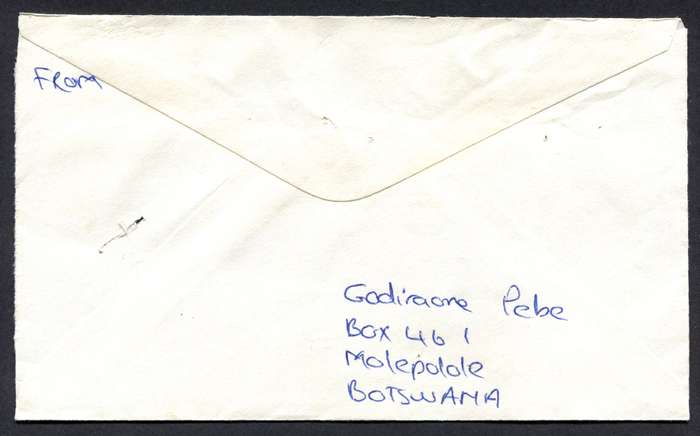 From
Godiraone Pebe
Box 461
Molepolole
BOTSWANA